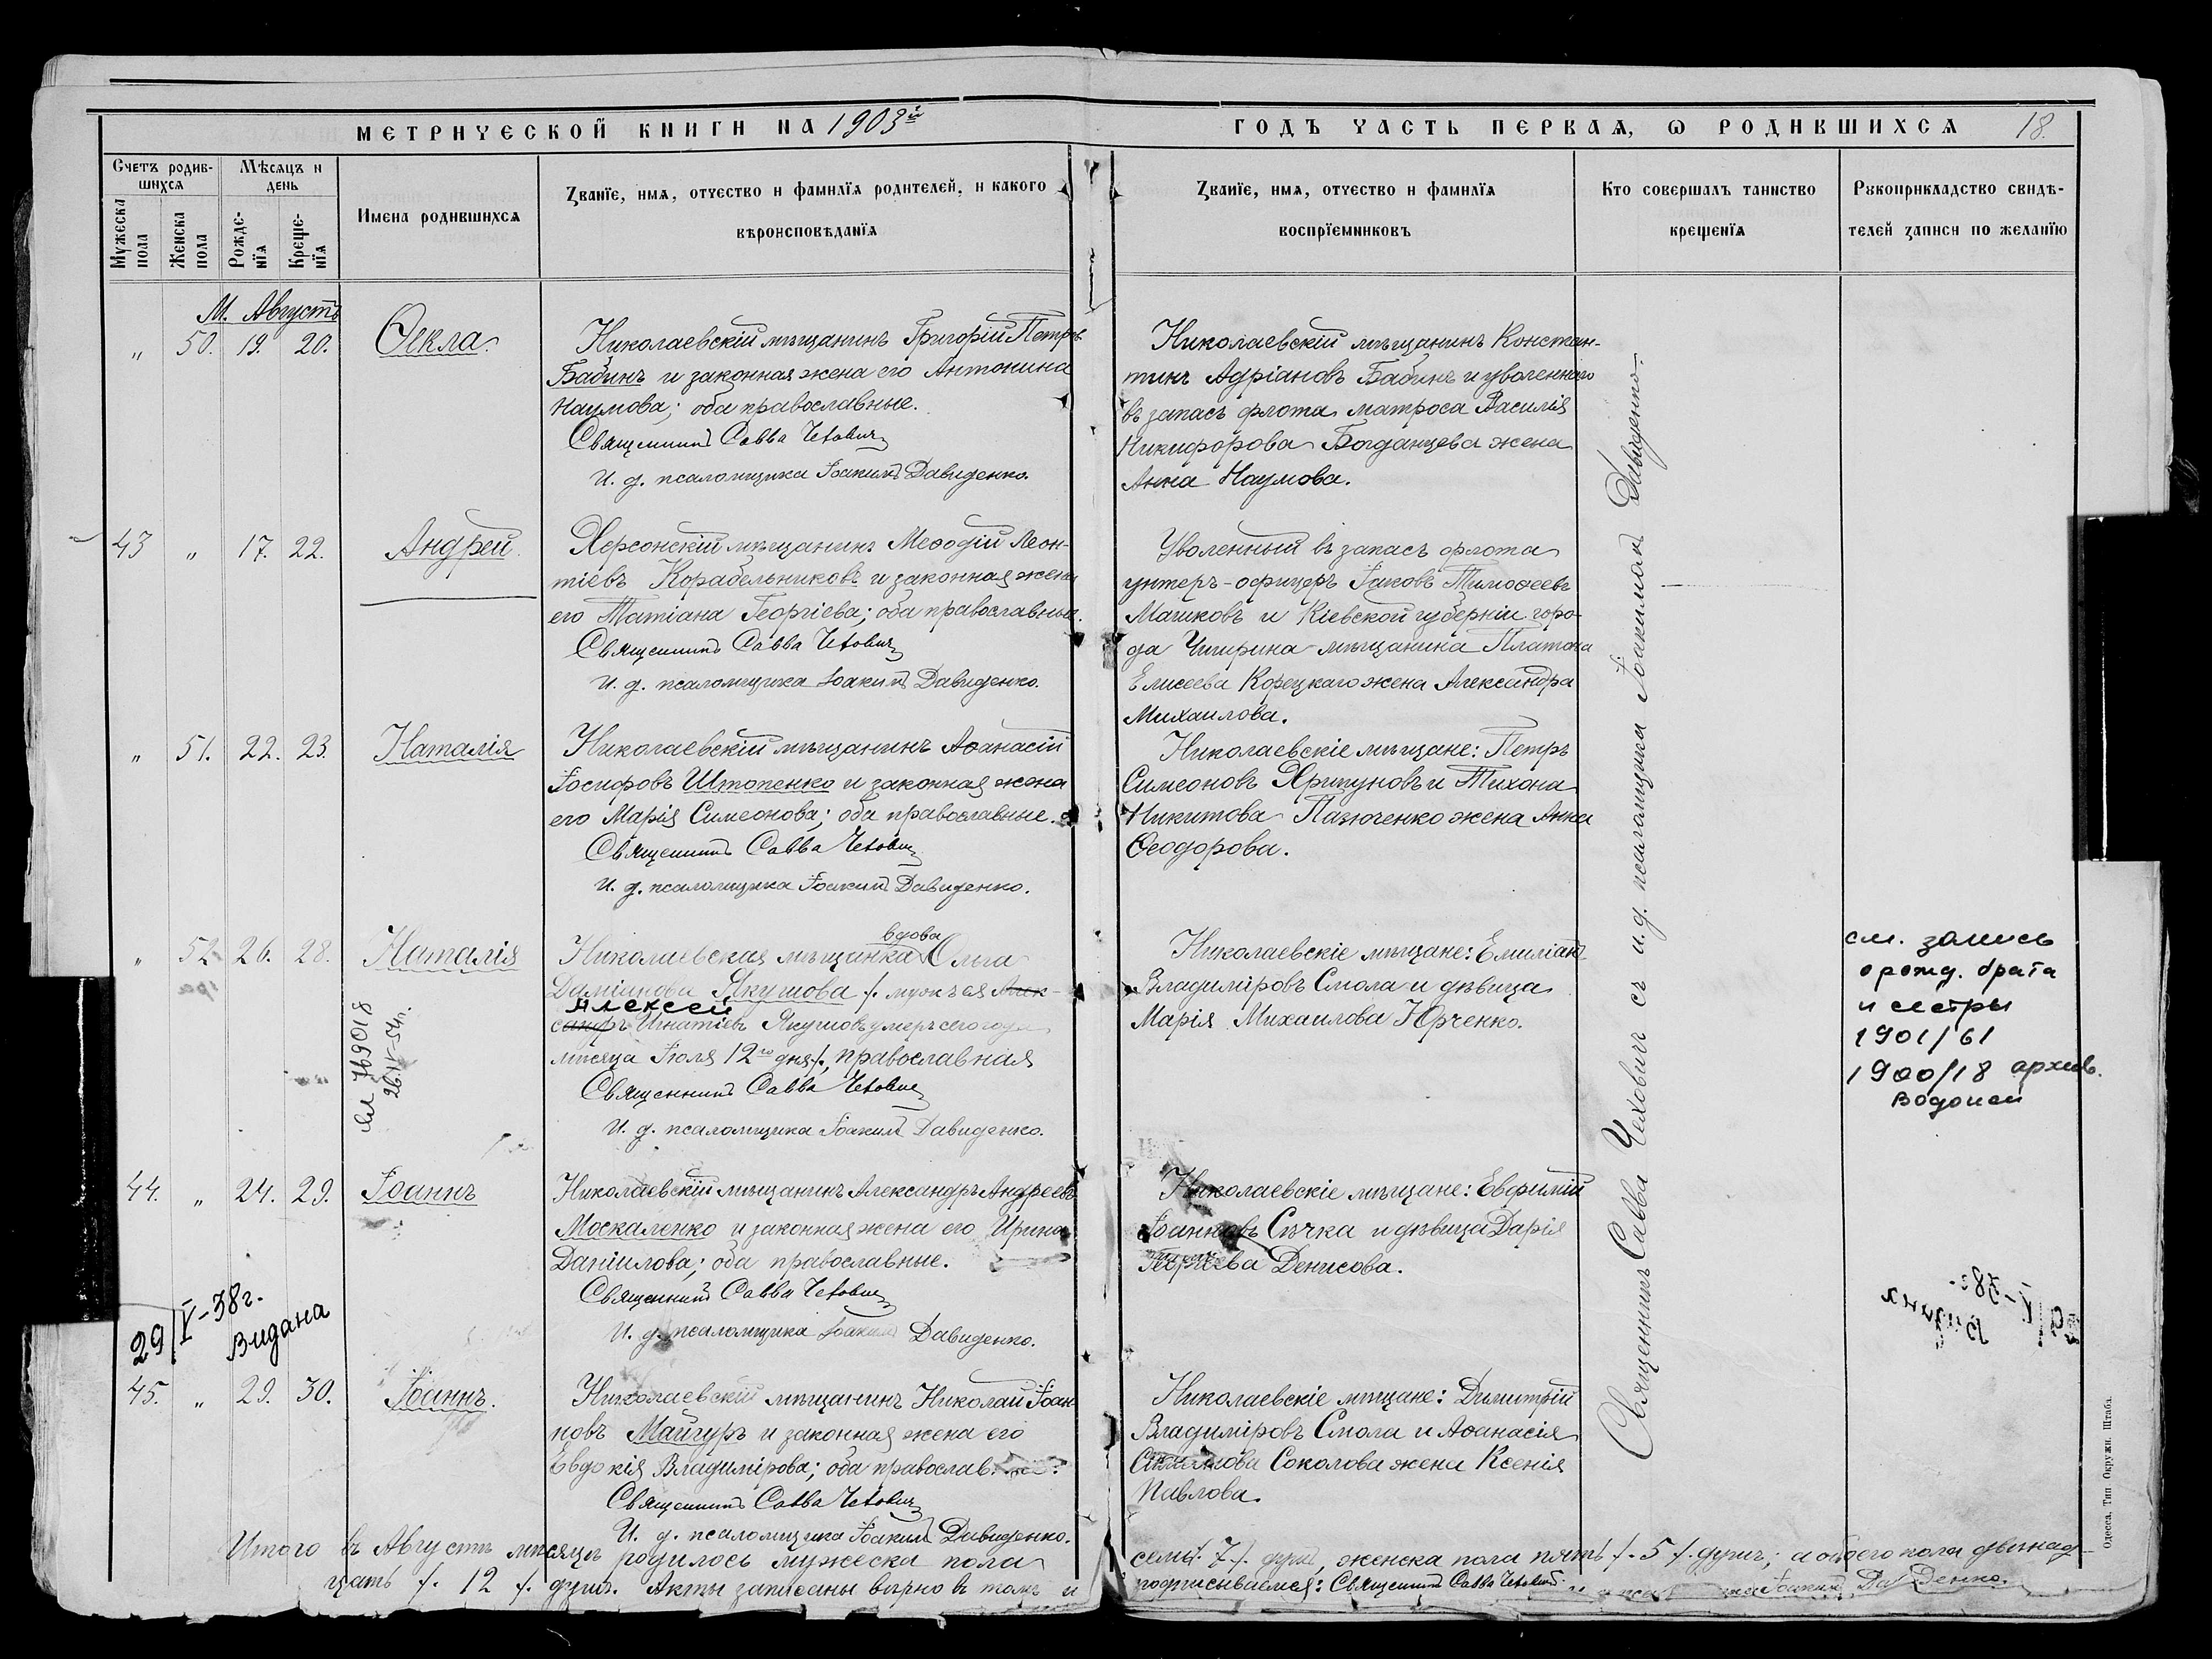 МЕТРИЧЕСКОЙ КНИГИ НА 1903й
ГОДЪ ЧАСТЬ ПЕРВАЯ, Ѡ РОДИВШИХСЯ 18.
Счетъ родив-
шихся
Мѣсяцъ и
день
Мужеска
пола
Женска
пола
Рожде-
нїя
Креще-
нїя
Имена родившихся
Званїе, имя, отчество и фамилїя родителей, и какого
вѣроисповѣданїя
Званїе, имя, отчество и фамилїя
воспрїемниковъ
Кто совершалъ таинство
крещенїя
Рукоприкладство свидѣ-
телей записи по желанїю
М. Августъ
„ 50. 19. 20.
Ѳекла.
Николаевскій мѣщанинъ Григорій Петровъ
Бабинъ и законная жена его Антонина
Наумова; оба православные.
Священникъ Савва Чехович
И. д. псаломщика Іоакимъ Давиденко.
Николаевскій мѣщанинъ Констан-
тинъ Адріановъ Бабинъ и уволеннаго
въ запасъ флота матроса Василія
Никифорова Богданцева жена
Анна Наумова.
43 „ 17. 22.
Андрей.
Херсонскій мѣщанинъ Меѳодій Леон-
тіевъ Корабельниковъ и законная жена
его Татіана Георгіева; оба православные.
Священникъ Савва Чехович
И. д. псаломщика Іоакимъ Давиденко.
Уволенный въ запасъ флота
унтеръ-офицеръ Іаковъ Тимоѳеевъ
Машковъ и Кіевской губерніи горо-
да Чигирина мѣщанина Платона
Елисеева Корецкаго жена Александра
Михаилова.
„ 51. 22. 23.
Наталія
Николаевскій мѣщанинъ Аѳанасій
Іосифовъ Штопенко и законная жена
его Марія Симеонова; оба православные.
Священникъ Савва Чехович
И. д. псаломщика Іоакимъ Давиденко.
Николаевскіе мѣщане: Петръ
Симеоновъ Хрипуновъ и Тихона
Никитова Пазюченко жена Анна
Ѳеодорова.
„ 52 26. 28.
Наталія
ЯЛ 769018
26.IV-54г.
вдова
Николаевская мѣщанка Ольга
Даміанова Якушова /. мужъ ея Алек-
Алексей
сандръ Игнатіевъ Якушовъ умеръ сего года
мѣсяца Іюля 12го дня /., православная
Священникъ Савва Чехович
И. д. псаломщика Іоакимъ Давиденко.
Николаевскіе мѣщане: Емиліанъ
Владиміровъ Смола и дѣвица
Марія Михаилова Юрченко.
см. запись
о рожд. брата
и сестры
1901/61
1900/18 архив.
Водопой
44. „ 24. 29.
Іоаннъ
Николаевскій мѣщанинъ Александръ Андреевъ
Москаленко и законная жена его Ирина
Даніилова; оба православные.
Священникъ Савва Чехович
И. д. псаломщика Іоакимъ Давиденко.
Николаевскіе мѣщане: Евфимій
Іоанновъ Сѣчка и дѣвица Дарія
Георгіева Денисова.
29/V-38г.
Видана
45. „ 29. 30.
Іоаннъ.
Николаевскій мѣщанинъ Николай Іоан-
новъ Майгуръ и законная жена его
Евдокія Владимірова; оба православ.
Священникъ Савва Чехович
И. д. псаломщика Іоакимъ Давиденко.
Николаевскіе мѣщане: Димитрій
Владиміровъ Смола и Аѳанасія
Соколова жена Ксенія
Павлова.
Священникъ Савва Чеховичъ съ и. д. псаломщика Іоакимомъ Давиденко.
Итого въ Августѣ мѣсяцѣ родилось мужеска пола
семь /. 7 /. душъ, женска пола пять /. 5 /. душъ; а обоего пола двѣнад-
цать /. 12 /. душъ. Акты записаны вѣрно в томъ и
подписываемся: Священникъ Савва Чехович
Одесса, Тип. Окружн. Штаба.